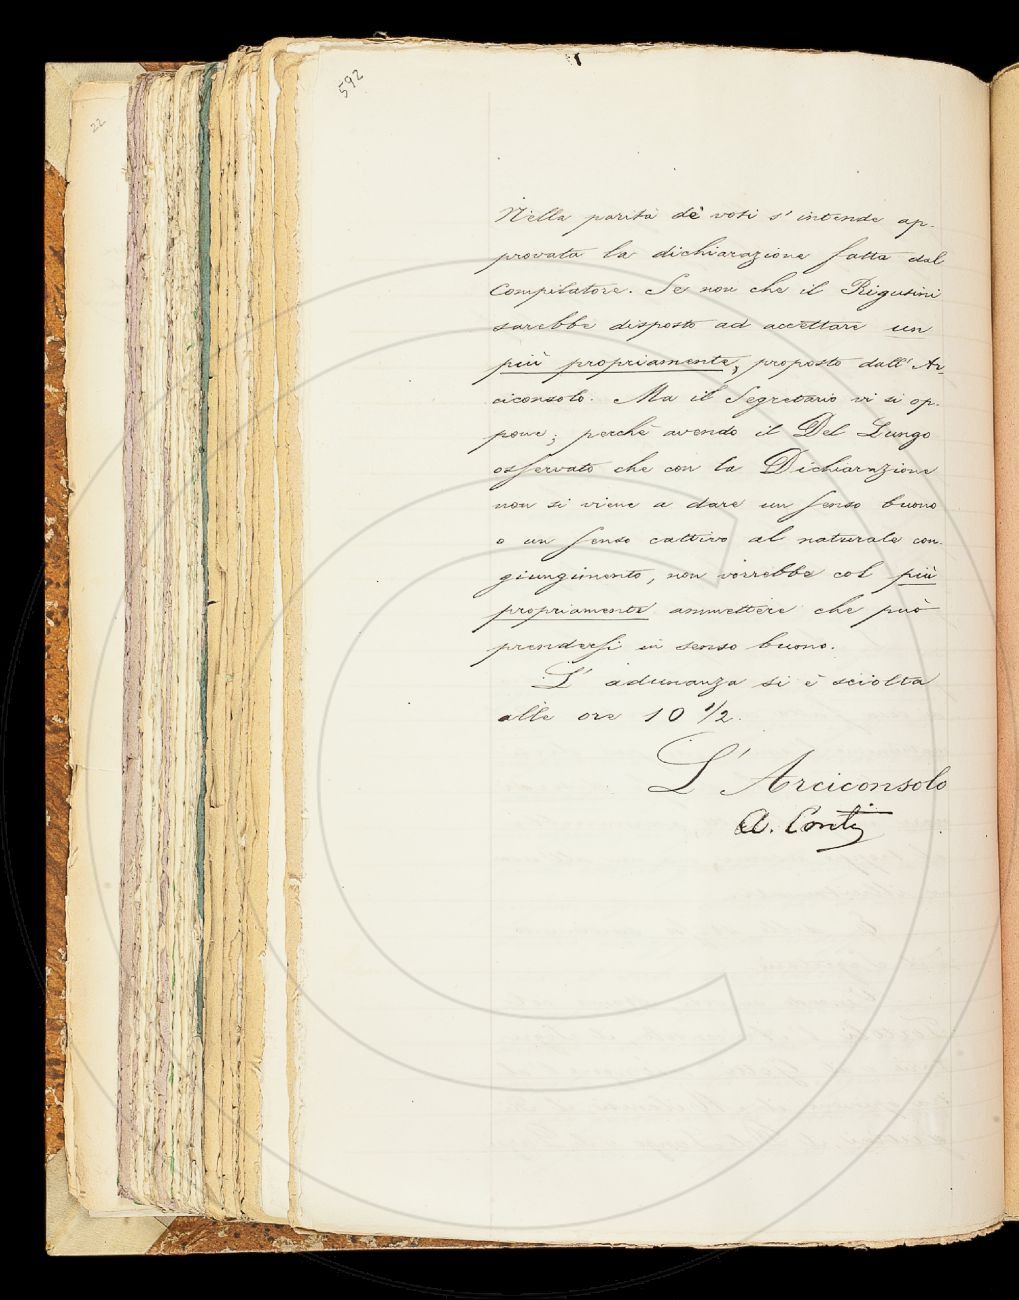 592
22
Nella parità dè voti s'intende ap-
provata la dichiarazione fatta dal
Compilatore. Se non che il Rigutini
sarebbe disposto ad accettare un
più propriamente, proposto dall'Ar-
ciconsolo. Ma il Segretario vi si op-
pone; perchè avendo il Del Lungo
osservato che con la Dichiarazione
non si viene a dare un senso buono
o un senso cattivo al naturale con-
giungimento, non vorrebbe col più
propriamente ammettere che può
prendersi in senso buono.
L'adunanza si è sciolta
alle ore 10 1/2.
L'Arciconsolo
A. Conti